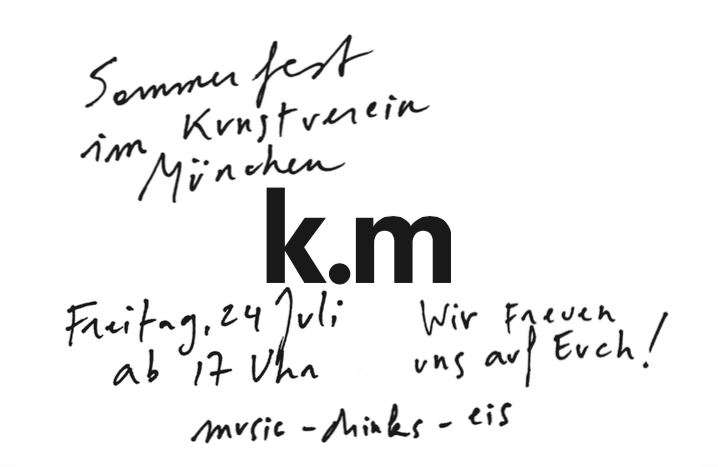 Sommerfest
im Kunstverein
München
k.m
Freitag, 24 Juli
ab 17 Uhr
Wir Freuen
uns auf Euch!
music - drinks - eis